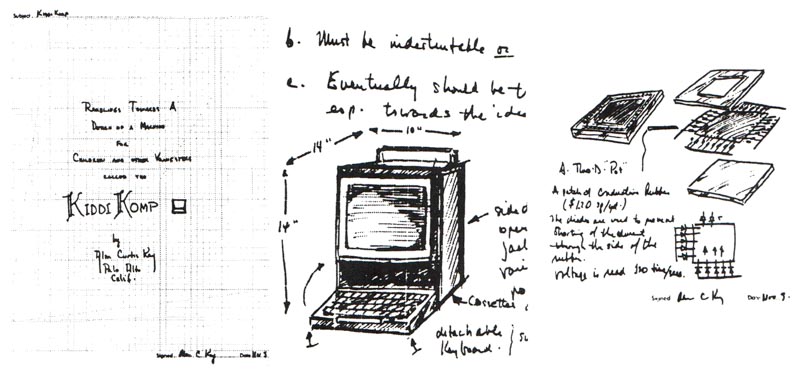 Subject. KIDDI KOMP
RAMBLINGS TOWARDS A
DESIGN OF A MACHINE
FOR
CHILDREN AND OTHER YOUNGSTERS
CALLED THE
KIDDI KOMP
by
Alan Curtis Kay
Palo Alto
Calif.
Signed. Alan C Kay Date Nov 9.
b. Must be indestructable or
c. Eventually should be
esp. towards the
14" 10"
14"
side
open
Cassettes
detachable
keyboard.
A. Three-D "Pot"
A patch of conductive Rubber
The diodes are used to prevent
shorting of the current
through the side of the
rubber.
Voltage is read
Signed Alan C Kay Date Nov. 9.